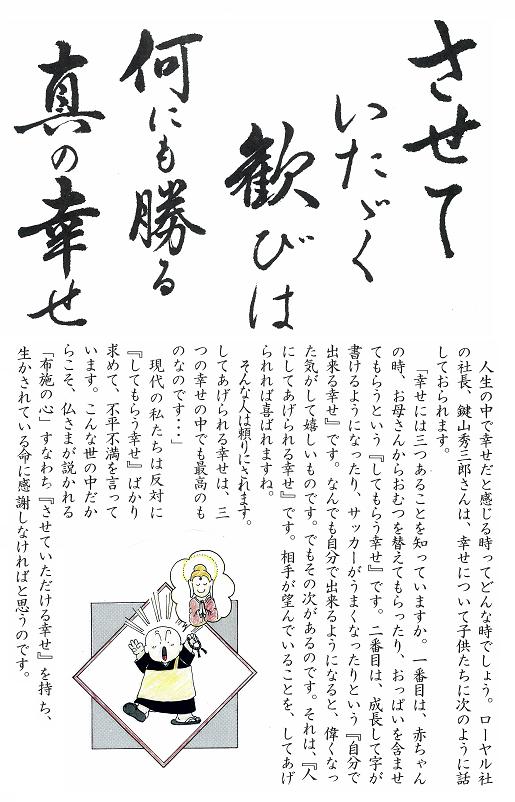 させて
いたゞく
歓びは
何にも勝る
真の幸せ
人生の中で幸せだと感じる時ってどんな時でしょう。ローヤル社
の社長、鍵山秀三郎さんは、幸せについて子供たちに次のように話
しておられます。
「幸せには三つあることを知っていますか。一番目は、赤ちゃん
の時、お母さんからおむつを替えてもらったり、おっぱいを含ませ
てもらうという『してもらう幸せ』です。二番目は、成長して字が
書けるようになったり、サッカーがうまくなったりという『自分で
出来る幸せ』です。なんでも自分で出来るようになると、偉くなっ
た気がして嬉しいものです。でもその次があるのです。それは、『人
にしてあげられる幸せ』です。相手が望んでいることを、してあげ
られれば喜ばれますね。
そんな人は頼りにされます。
してあげられる幸せは、三
つの幸せの中でも最高のも
のなのです・・」
現代の私たちは反対に
『してもらう幸せ』ばかり
求めて、不平不満を言って
います。こんな世の中だか
らこそ、仏さまが説かれる
「布施の心」すなわち『させていただける幸せ』を持ち、
生かされている命に感謝しなければと思うのです。